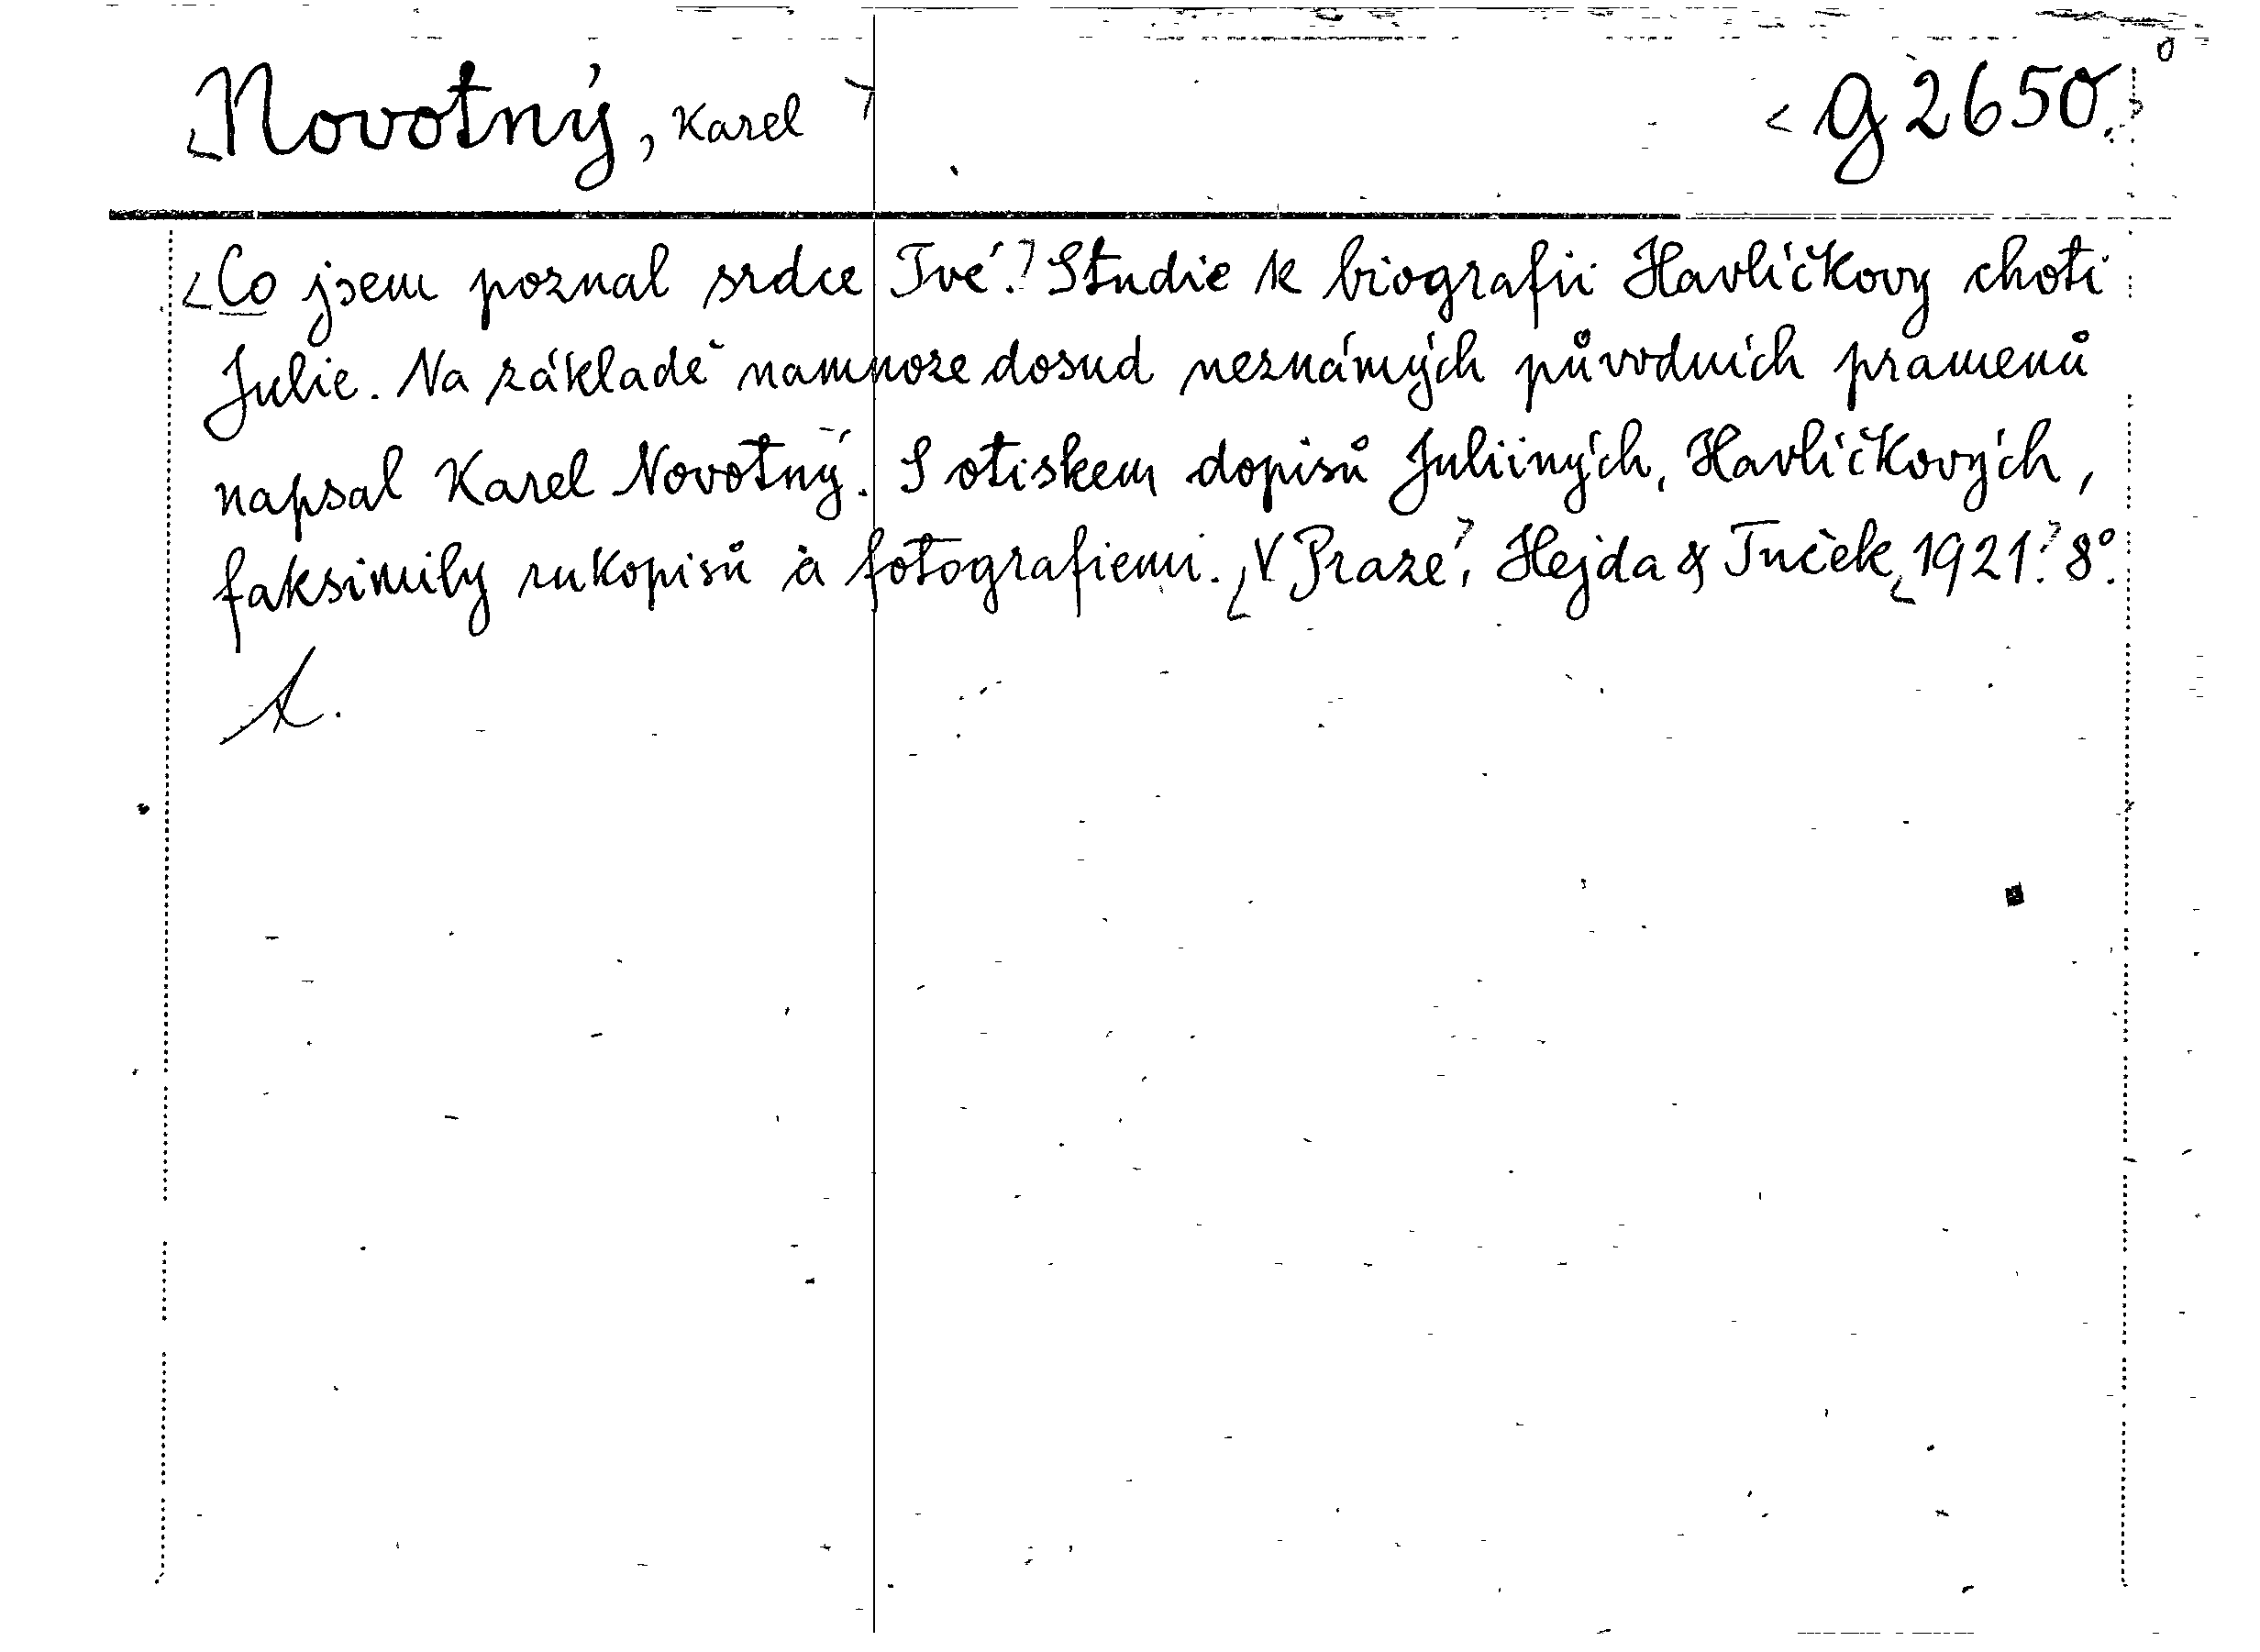 Novotný, Karel
g 2650
Co jsem poznal srdce Tvé. Studie k biografii Havlíčkovy choti
Julie. Na základě namnoze dosud neznámých původních pramenů
napsal Karel Novotný. S otiskem dopisů Juliiných, Havlíčkových,
faksimily rukopisů a fotografiemi. V Praze, Hejda & Tuček, 1921. 8°.